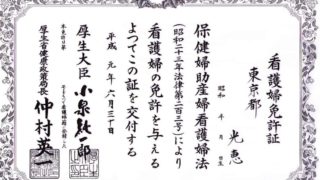 看護婦免許証
東京都
光恵
昭和 年 月 日生
保健婦助産婦看護婦法
(昭和二十三年法律第二百三号)により
看護婦の免許を与える
よつてこの証を交付する
平成元年六月三十日
厚生大臣 小泉純一郎
厚生省健康政策局長 仲村英一